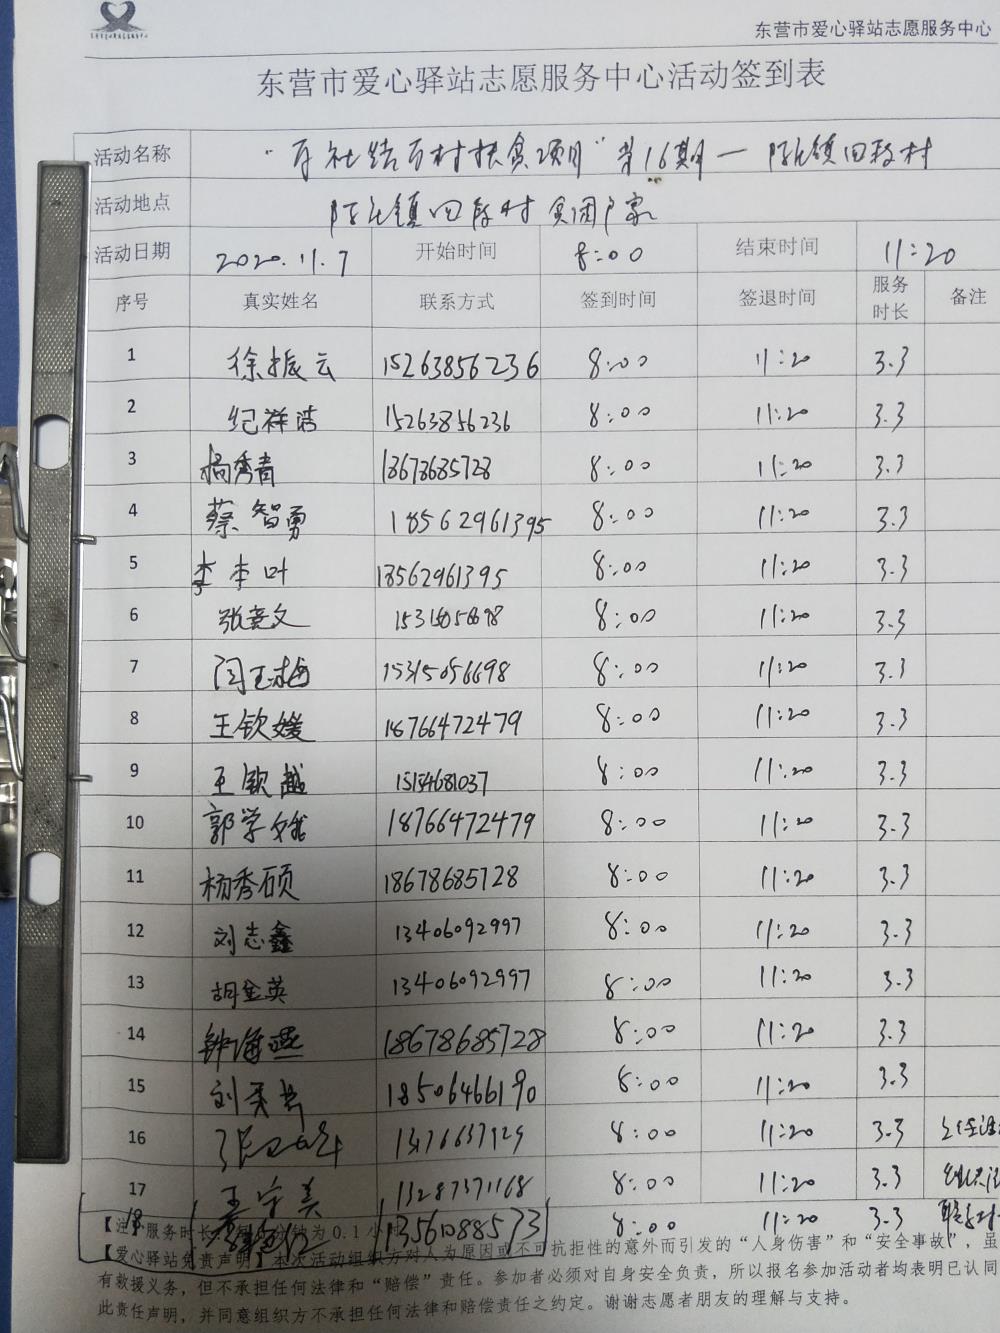 东营市爱心驿站志愿服务中心
东营市爱心驿站志愿服务中心活动签到表
活动名称 “百社结百村扶贫项目”第16期—陈庄镇四段村
活动地点 陈庄镇四段村贫困户家
活动日期 2020.11.7 开始时间 8:00 结束时间 11:20
序号 真实姓名 联系方式 签到时间 签退时间 服务时长 备注
1 徐振云 15263856236 8:00 11:20 3.3
2 纪祥洁 15263856236 8:00 11:20 3.3
3 杨秀青 18678685728 8:00 11:20 3.3
4 蔡智勇 18562961395 8:00 11:20 3.3
5 李叶 18562961395 8:00 11:20 3.3
6 张竞文 15315056698 8:00 11:20 3.3
7 闫玉梅 15315056698 8:00 11:20 3.3
8 王钦媛 18766472479 8:00 11:20 3.3
9 王钦越 15154681037 8:00 11:20 3.3
10 郭学娥 18766472479 8:00 11:20 3.3
11 杨秀硕 18678685728 8:00 11:20 3.3
12 刘志鑫 13406092997 8:00 11:20 3.3
13 胡金英 13406092997 8:00 11:20 3.3
14 钟海燕 18678685728 8:00 11:20 3.3
15 刘 18506466190 8:00 11:20 3.3
16 张 8:00 11:20 3.3
17 王守美 13287371168 8:00 11:20 3.3
18 13561088573 8:00 11:20 3.3
【注：服务时长 每6分钟为0.1小时
【爱心驿站免责声明】本次活动组织方对人为原因或不可抗拒性的意外而引发的“人身伤害”和“安全事故”，虽
有救援义务，但不承担任何法律和“赔偿”责任。参加者必须对自身安全负责，所以报名参加活动者均表明已认同
此责任声明，并同意组织方不承担任何法律和赔偿责任之约定。谢谢志愿者朋友的理解与支持。